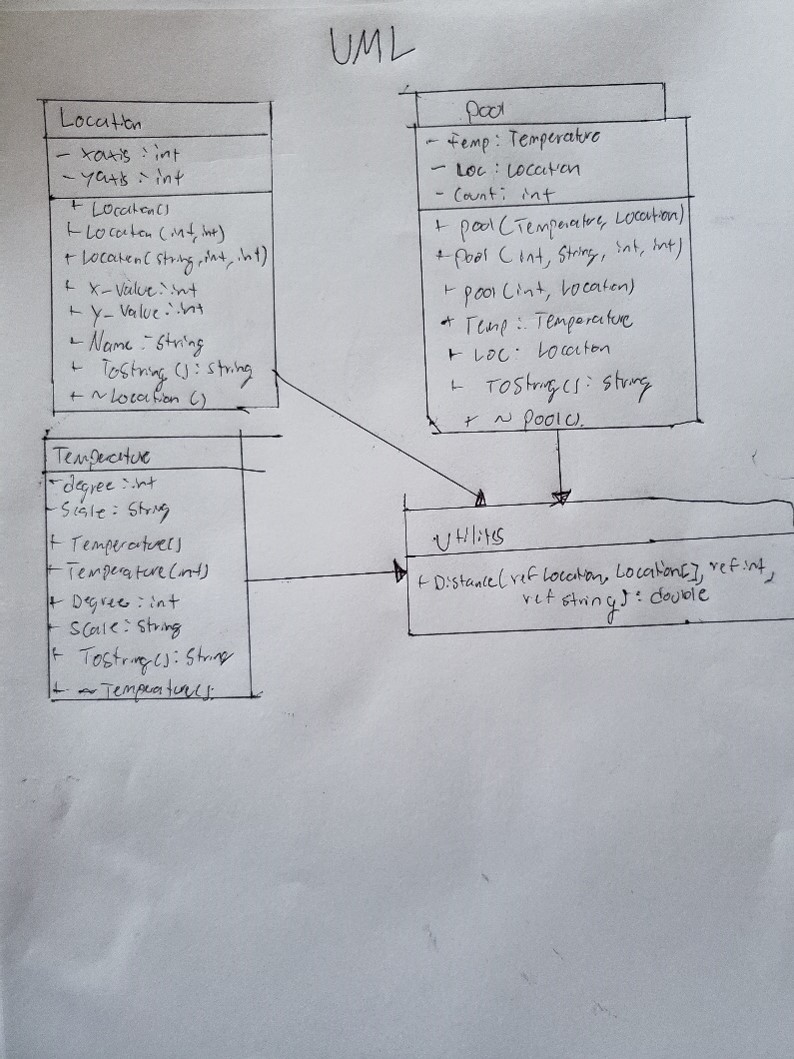 UML
Location
- xaxis : int
- yaxis : int
+ Location()
+ Location (int, int)
+ Location(string, int, int)
+ X-Value : int
+ Y-Value : int
+ Name : String
+ ToString () : string
+ ~Location ()
Pool
- Temp : Temperature
- Loc : Location
- Count : int
+ pool (Temperature, Location)
+ pool (int, String, int, int)
+ pool (int, Location)
+ Temp : Temperature
+ Loc : Location
+ ToString() : string
+ ~ Pool().
Temperature
- degree : int
- Scale : String
+ Temperature()
+ Temperature(int)
+ Degree : int
+ Scale : String
+ ToString() : String
+ ~Temperature().
Utilites
+ Distance(ref Location, Location[], ref int,
ref string) : double